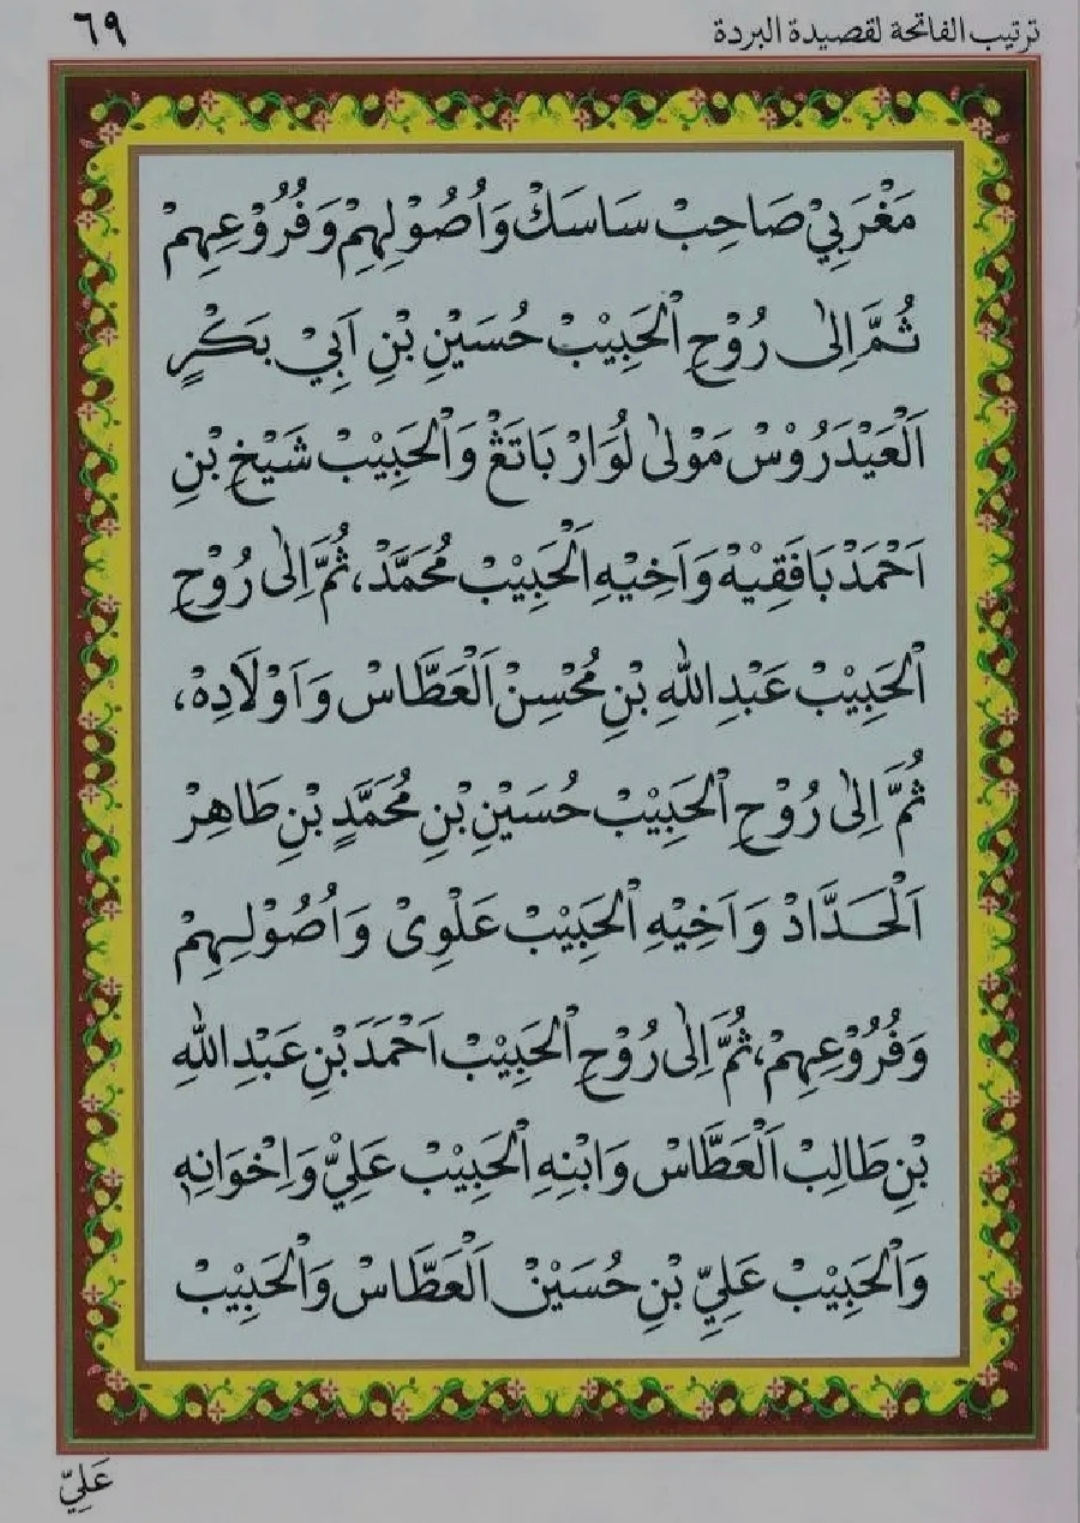 ترتيب الفاتحة لقصيدة البردة ٦٩
مَغْرَبِيْ صَاحِبْ سَاسَكْ وَاُصُوْلِهِمْ وَفُرُوْعِهِمْ
ثُمَّ اِلٰى رُوْحِ الْحَبِيْبْ حُسَيْنِ بْنِ اَبِيْ بَكْرٍ
اَلْعَيْدَرُوْسْ مَوْلٰى لُوَارْ بَاتَڠْ وَالْحَبِيْبْ شَيْخِ بْنِ
اَحْمَدْ بَافَقِيْهْ وَاَخِيْهِ الْحَبِيْبْ مُحَمَّدْ، ثُمَّ اِلٰى رُوْحِ
الْحَبِيْبْ عَبْدِ اللّٰهِ بْنِ مُحْسِنْ اَلْعَطَّاسْ وَاَوْلَادِهْ،
ثُمَّ اِلٰى رُوْحِ الْحَبِيْبْ حُسَيْنِ بْنِ مُحَمَّدٍ بْنِ طَاهِرْ
اَلْحَدَّادْ وَاَخِيْهِ الْحَبِيْبْ عَلْوِىْ وَاُصُوْلِهِمْ
وَفُرُوْعِهِمْ، ثُمَّ اِلٰى رُوْحِ الْحَبِيْبْ اَحْمَدَ بْنِ عَبْدِ اللّٰهِ
بْنِ طَالِبْ اَلْعَطَّاسْ وَابْنِهِ الْحَبِيْبْ عَلِيْ وَاِخْوَانِهِ
وَالْحَبِيْبْ عَلِيِّ بْنِ حُسَيْنْ اَلْعَطَّاسْ وَالْحَبِيْبْ
عَلِيِّ